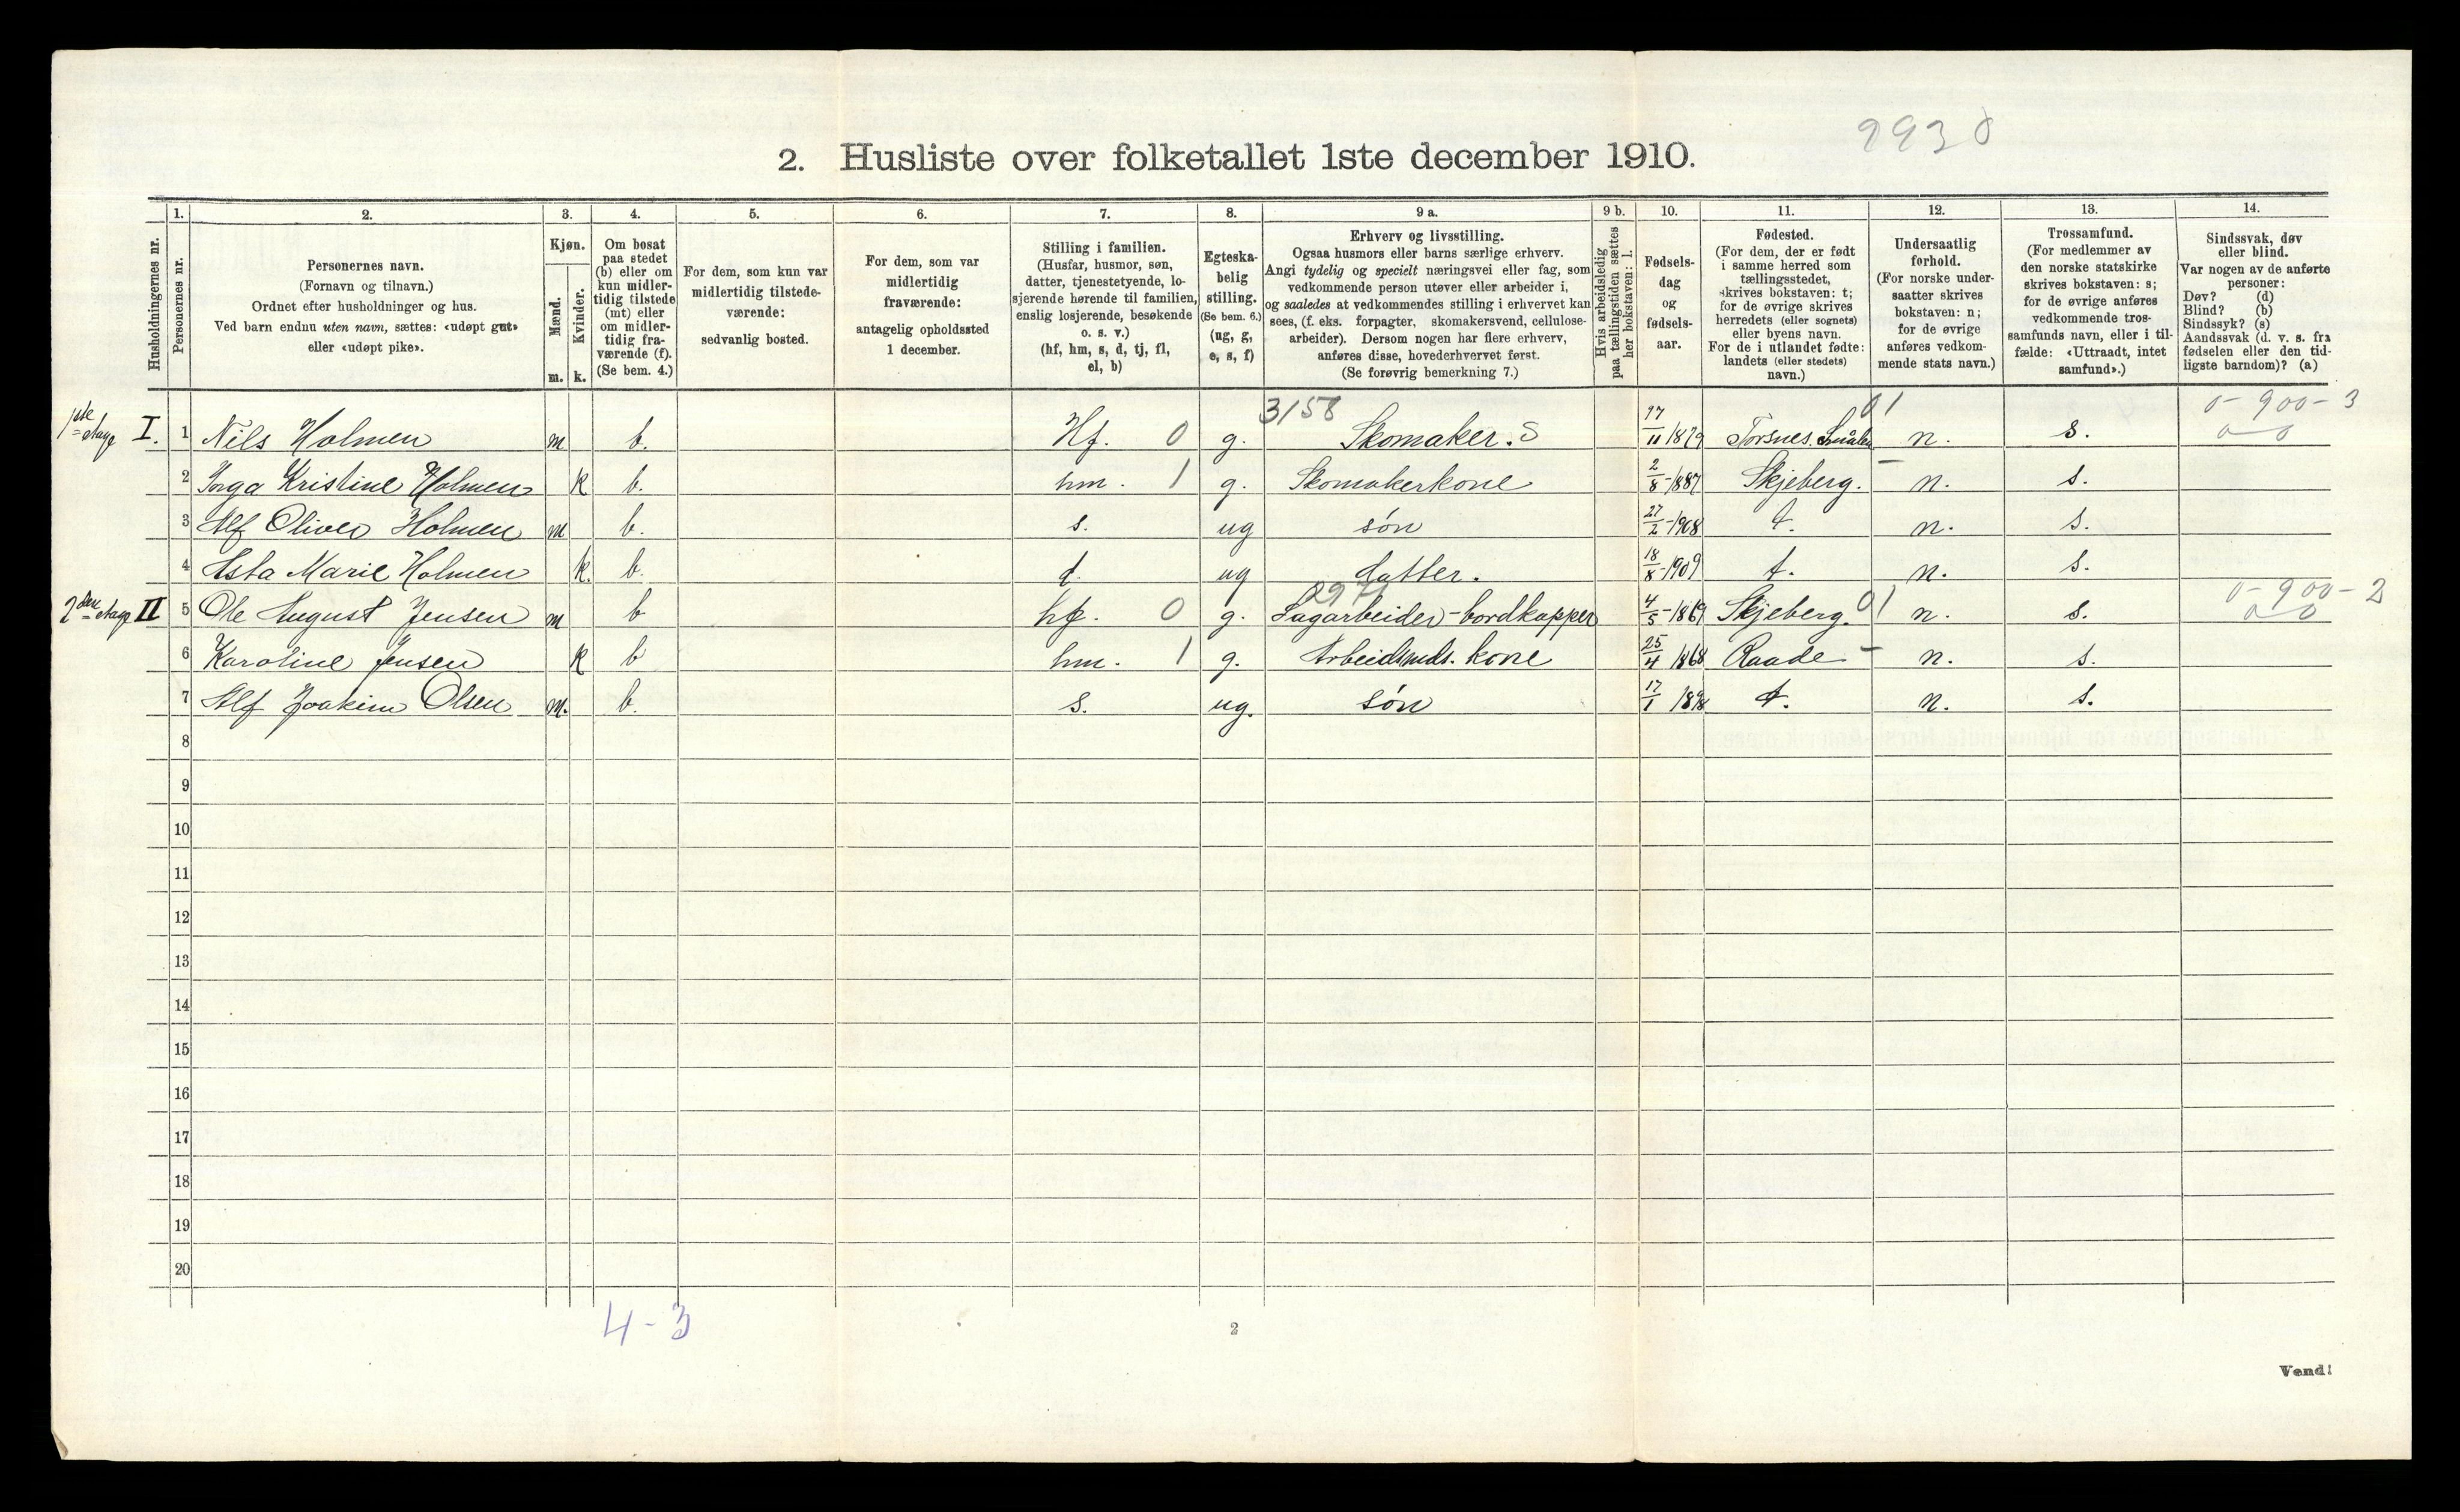 9930
2. Husliste over folketallet 1ste december 1910.
Husholdningernes nr.
1. Personernes nr.
2. Personernes navn.
(Fornavn og tilnavn.)
Ordnet efter husholdninger og hus.
Ved barn endnu uten navn, sættes: «udøpt gut»
eller «udøpt pike».
3. Kjøn.
Mænd. m.
Kvinder. k.
4. Om bosat
paa stedet
(b) eller om
kun midler-
tidig tilstede
(mt) eller
om midler-
tidig fra-
værende (f).
(Se bem. 4.)
5. For dem, som kun var
midlertidig tilstede-
værende:
sedvanlig bosted.
6. For dem, som var
midlertidig
fraværende:
antagelig opholdssted
1 december.
7. Stilling i familien.
(Husfar, husmor, søn,
datter, tjenestetyende, lo-
sjerende hørende til familien,
enslig losjerende, besøkende
o. s. v.)
(hf, hm, s, d, tj, fl,
el, b)
8. Egteska-
belig
stilling.
(Se bem. 6.)
(ug, g,
e, s, f)
9 a. Erhverv og livsstilling.
Ogsaa husmors eller barns særlige erhverv.
Angi tydelig og specielt næringsvei eller fag, som
vedkommende person utøver eller arbeider i,
og saaledes at vedkommendes stilling i erhvervet kan
sees, (f. eks. forpagter, skomakersvend, cellulose-
arbeider). Dersom nogen har flere erhverv,
anføres disse, hovederhvervet først.
(Se forøvrig bemerkning 7.)
9 b. Hvis arbeidsledig
paa tællingstiden sættes
her bokstaven: l.
10. Fødsels-
dag
og
fødsels-
aar.
11. Fødested.
(For dem, der er født
i samme herred som
tællingsstedet,
skrives bokstaven: t;
for de øvrige skrives
herredets (eller sognets)
eller byens navn.
For de i utlandet fødte:
landets (eller stedets)
navn.)
12. Undersaatlig
forhold.
(For norske under-
saatter skrives
bokstaven: n;
for de øvrige
anføres vedkom-
mende stats navn.)
13. Trossamfund.
(For medlemmer av
den norske statskirke
skrives bokstaven: s;
for de øvrige anføres
vedkommende tros-
samfunds navn, eller i til-
fælde: «Uttraadt, intet
samfund».)
14. Sindssvak, døv
eller blind.
Var nogen av de anførte
personer:
Døv? (d)
Blind? (b)
Sindssyk? (s)
Aandssvak (d. v. s. fra
fødselen eller den tid-
ligste barndom)? (a)
3158 01 0-900-3
1ste etage I. 1 Nils Holmen m b. Hf. 0 g. Skomaker. S 17/11 1879 Torsnes. Smålen n. s. 0 0
2 Inga Kristine Holmen k b. hm. 1 g. Skomakerkone 2/8-1887 Skjeberg. - n. s.
3 Alf Oliver Holmen m b. s. ug søn 27/2-1908 t. n. s.
4 Asta Marie Holmen k. b. d. ug datter. 18/8-1909 t. n. s.
297 0-900-2
2den etage II 5 Ole August Jensen m b hf. 0 g. Sagarbeider-bordkapper 4/5-1869 Skjeberg. 01 n. s. 0 0
6 Karoline Jensen k b hm. 1 g. Arbeidsmds. kone 25/4 1868 Raade - n. s.
7 Alf Joakim Olsen m. b. s. ug. søn 17/1 1898 t. n. s.
8
9
10
11
12
13
14
15
16
17
18
19
20
4-3
2
Vend!